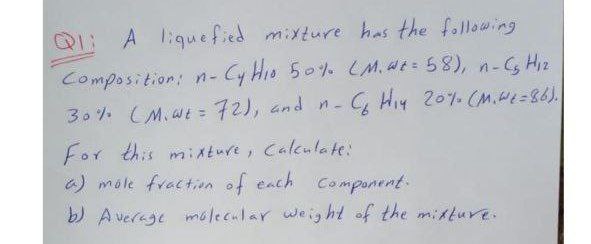 Q1: A liquefied mixture has the following
Composition: n-C4H10 50% (M.wt = 58), n-C5H12
30% (M.wt = 72), and n-C6H14 20% (M.wt=86).
For this mixture, Calculate:
a) mole fraction of each Component.
b) Average molecular weight of the mixture.